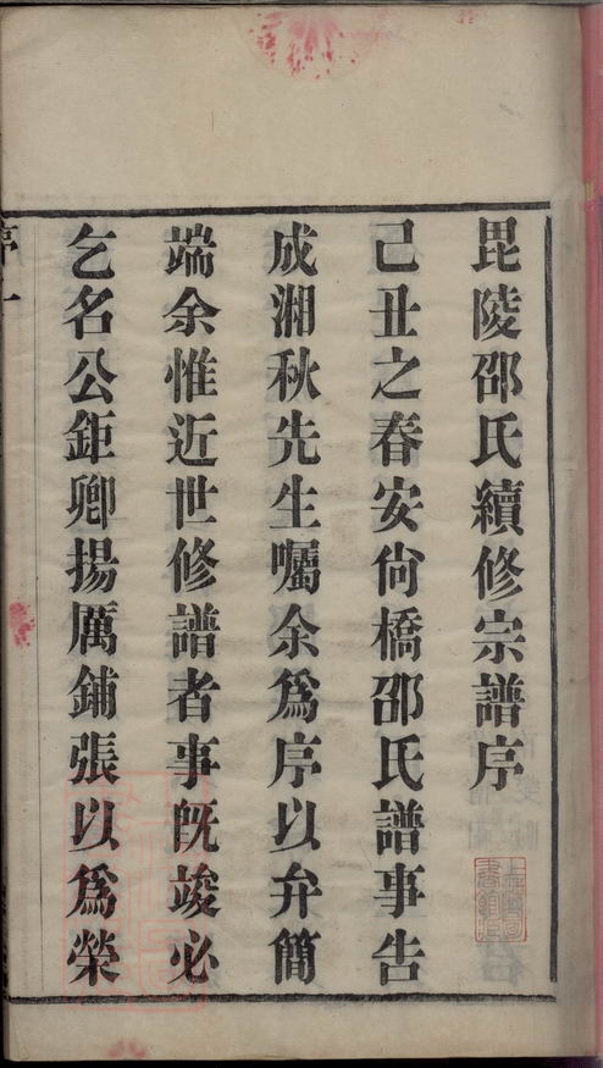 毘陵邵氏續修宗譜序
己丑之春安尙橋邵氏譜事告
成湘秋先生囑余爲序以弁簡
端余惟近世修譜者事旣竣必
乞名公鉅卿揚厲鋪張以爲榮
序一